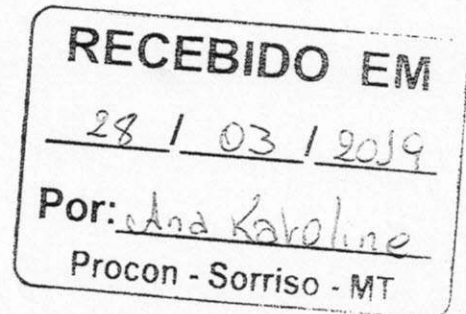 RECEBIDO EM
28 / 03 / 2019
Por: Ana Karoline
Procon - Sorriso - MT